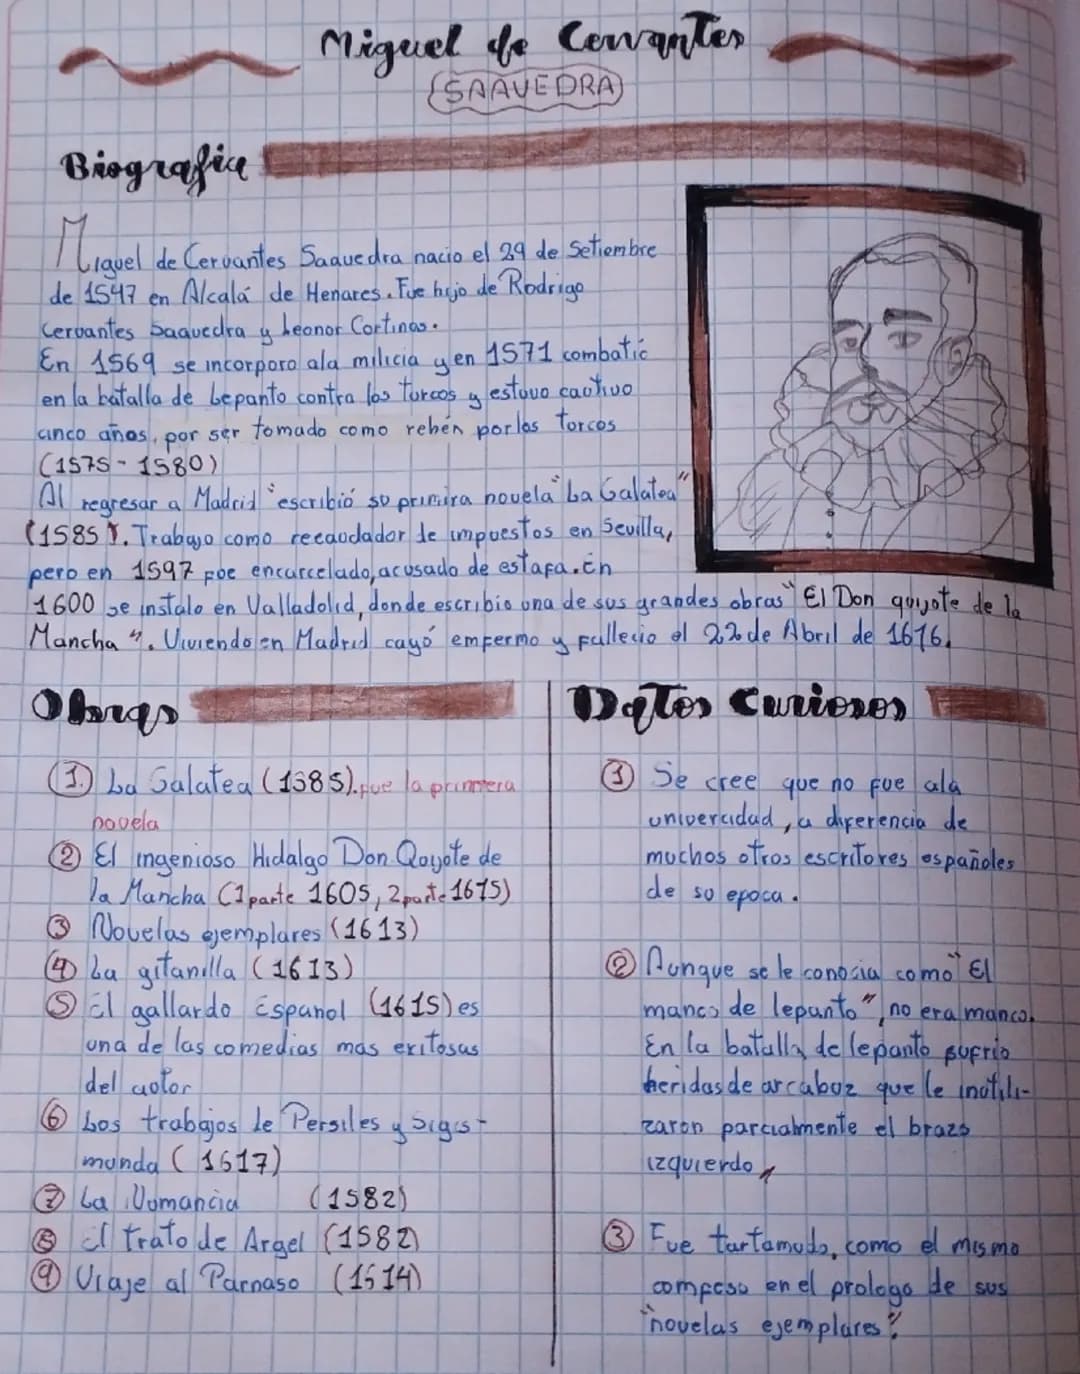 Miguel de Cervantes
SAAVEDRA
Biografia
Miguel de Cervantes Saavedra nacio el 29 de Setiembre
de 1547 en Alcalá de Henares. Fue hijo de Rodrigo
Cervantes Saavedra y Leonor Cortinas.
En 1569 se incorporo ala milicia y en 1571 combatió
en la batalla de Lepanto contra los turcos y estuvo cautivo
cinco años, por ser tomado como rehén por los Torcos
(1575-1580)
Al regresar a Madrid "escribió su primira novela "La Galatea"
(1585). Trabajo como recaudador de impuestos en Sevilla,
pero en 1597 foe encarcelado, acusado de estafa. En
1600 se instalo en Valladolid, donde escribio una de sus grandes obras "El Don quijote de la
Mancha". Viviendo en Madrid cayó emfermo y fallecio el 22 de Abril de 1616.
Obras
1. La Galatea (1585). fue la primera
novela
2 El ingenioso Hidalgo Don Quijote de
la Mancha (1 parte 1605, 2 parte 1615)
3 Novelas ejemplares (1613)
4 La gitanilla (1613)
5 El gallardo Español (1615) es
una de las comedias mas exitosas
del autor
6 Los trabajos de Persiles y Sigis-
munda (1617)
7 La Numancia (1582)
8 El trato de Argel (1582)
9 Viaje al Parnaso (1614)
Datos Curiosos
1 Se cree que no fue ala
univercidad, a diferencia de
muchos otros escritores españoles
de su epoca.
2 Aunque se le conocia como "El
manco de lepanto", no era manco.
En la batalla de lepanto sufrio
heridas de arcabuz que le inutili-
zaron parcialmente el brazo
izquierdo
3 Fue tartamudo, como el mismo
compeso en el prologo de sus
"novelas ejemplares".